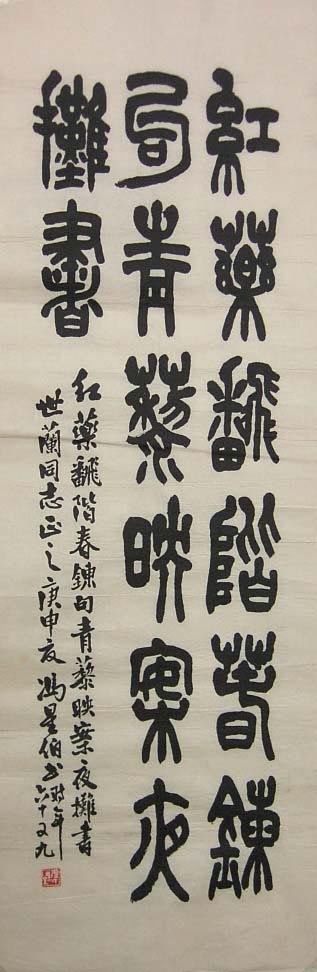 紅藥飜階春鍊
句青藜映案夜
攤書
红藥飜階春鍊句青藜映案夜攤書
世蘭同志正之庚申夜馮星伯书時年
六十又九